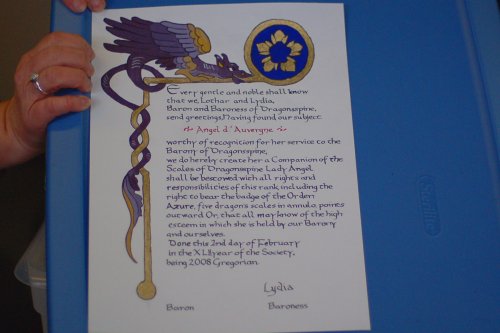 Every gentle and noble shall know
that we, Lothar and Lydia,
Baron and Baroness of Dragonsspine,
send greetings. Having found our subject
Angel d'Auvergne
worthy of recognition for her service to the
Barony of Dragonsspine,
we do hereby create her a Companion of the
Scales of Dragonsspine Lady Angel
shall be bestowed with all rights and
responsibilities of this rank including the
right to bear the badge of the Order:
Azure, five dragon's scales in annulo, points
outward Or, that all may know of the high
esteem in which she is held by our Barony
and ourselves.
Done this 2nd day of February
in the XLII year of the Society,
being 2008 Gregorian.
Lydia
Baron Baroness